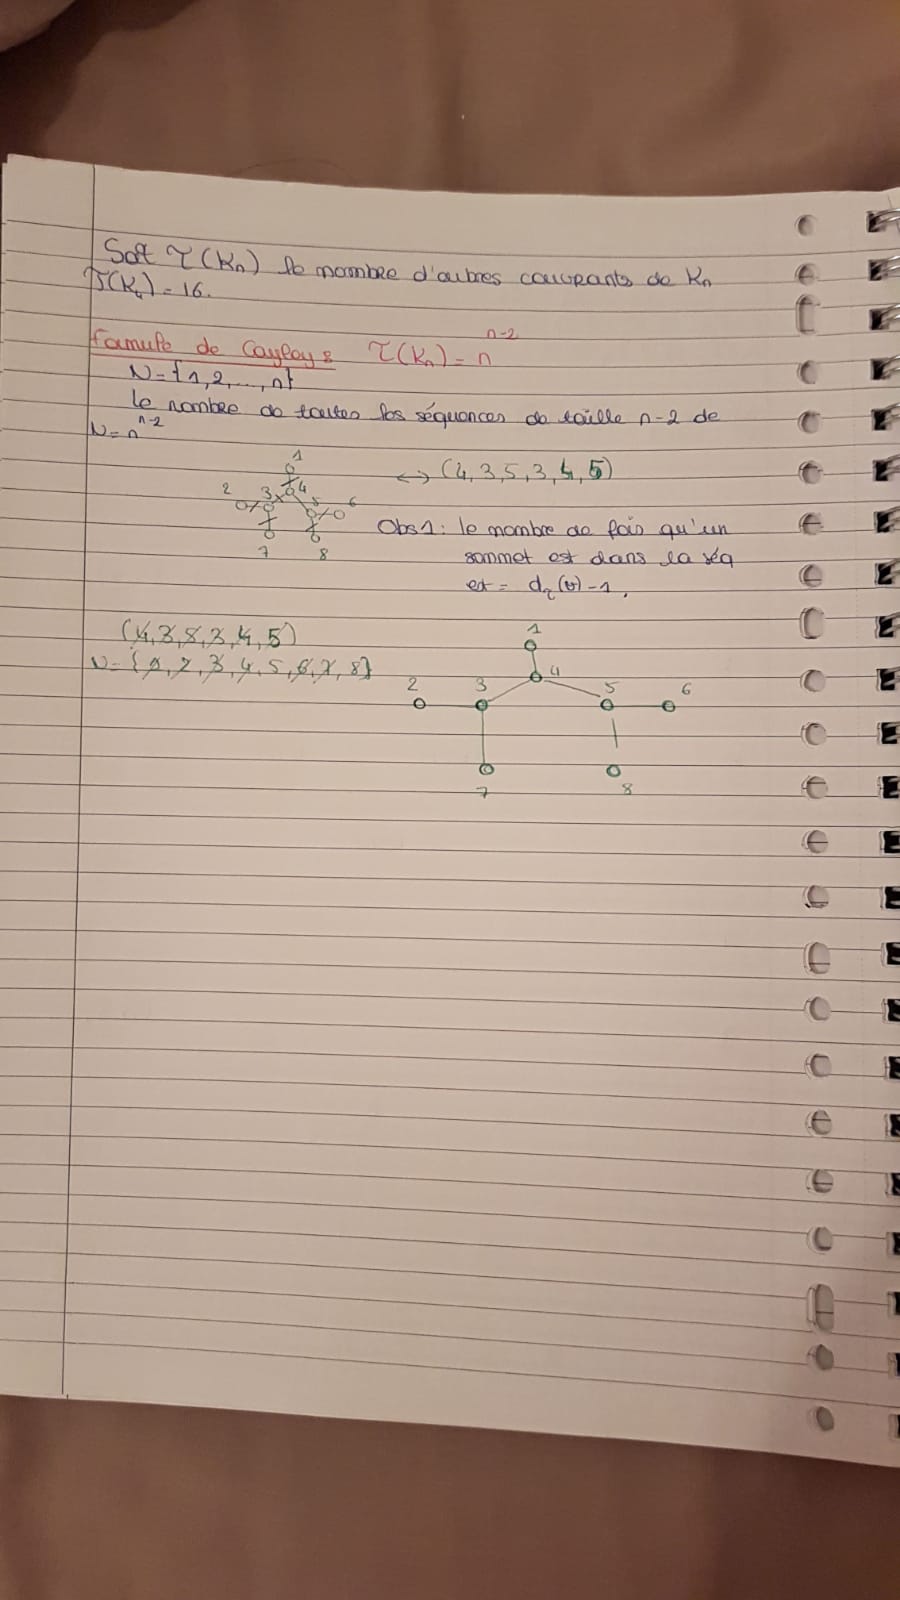 Soit τ(Kn) le nombre d'arbres couvrants de Kn
τ(K4) = 16.
Formule de Cayley : τ(Kn) = n^(n-2)
N = {1, 2, ..., n}
Le nombre de toutes les séquences de taille n-2 de
N = n^(n-2)
1
2 3 4 5 6
7 8
↔ (4, 3, 5, 3, 4, 5)
Obs 1 : le nombre de fois qu'un
sommet est dans la séq
est = d_τ(v) - 1.
(4, 3, 5, 3, 4, 5)
N = {1, 2, 3, 4, 5, 6, 7, 8}
1
2 3 4 5 6
7 8